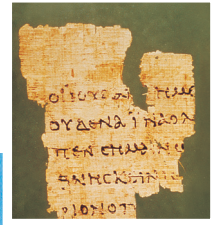 ΟΙ ΙΟΥΔΑΙ ΗΜΕ
ΟΥΔΕΝΑ ΙΝΑ Ο Λ
ΠΕΝ CΗΜΑΙΝΩ
ΘΝΗCΚΕΙΝ
ΡΙΟΝ ΟΠ